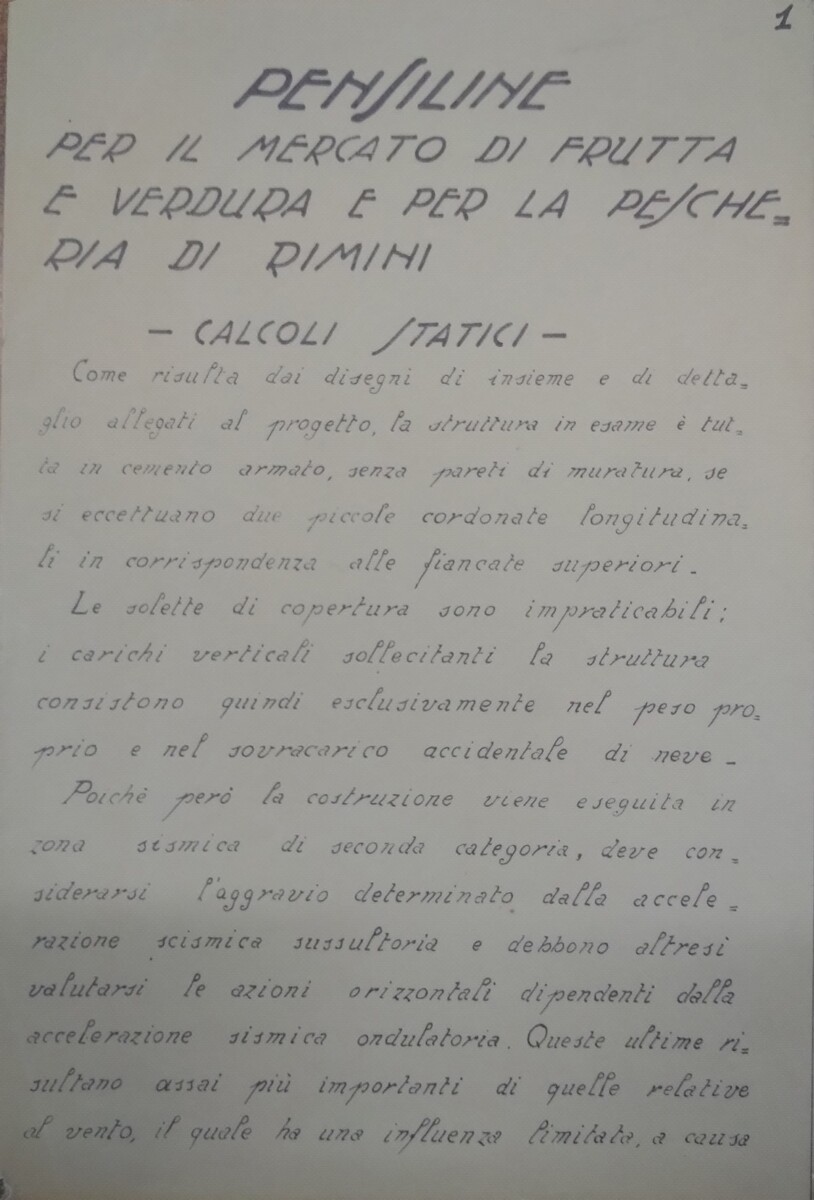 1
PENSILINE
PER IL MERCATO DI FRUTTA
E VERDURA E PER LA PESCHE=
RIA DI RIMINI
— CALCOLI STATICI —
Come risulta dai disegni di insieme e di detta=
glio allegati al progetto, la struttura in esame è tut=
ta in cemento armato, senza pareti di muratura, se
si eccettuano due piccole cordonate longitudina=
li in corrispondenza alle fiancate superiori.
Le solette di copertura sono impraticabili;
i carichi verticali sollecitanti la struttura
consistono quindi esclusivamente nel peso pro=
prio e nel sovracarico accidentale di neve.
Poichè però la costruzione viene eseguita in
zona sismica di seconda categoria, deve con=
siderarsi l'aggravio determinato dalla accele=
razione scismica sussultoria e debbono altresì
valutarsi le azioni orizzontali dipendenti dalla
accelerazione sismica ondulatoria. Queste ultime ri=
sultano assai più importanti di quelle relative
al vento, il quale ha una influenza limitata, a causa